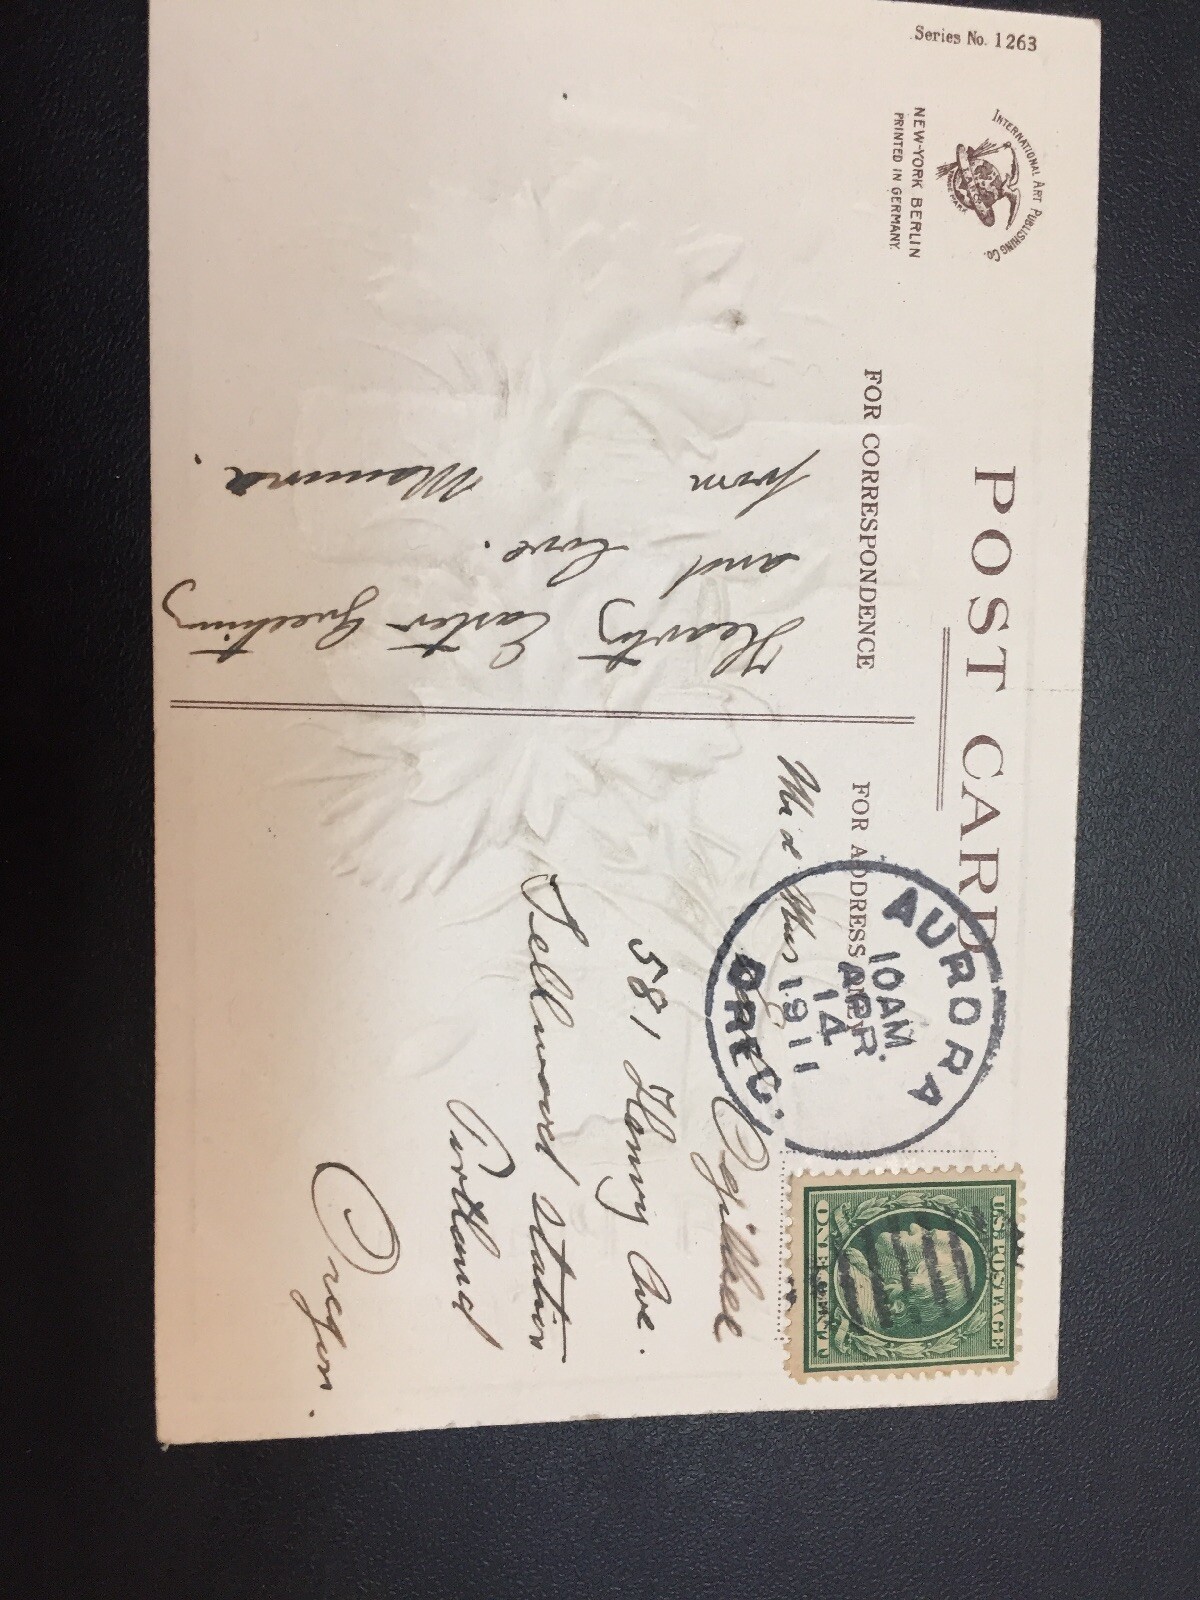 Series No. 1263
INTERNATIONAL ART PUBLISHING Co.
NEW-YORK BERLIN
PRINTED IN GERMANY.
POST CARD
FOR CORRESPONDENCE
FOR ADDRESS ONLY
AURORA
10AM
APR.
14
1911
OREG.
U.S. POSTAGE
ONE CENT
Hearty Easter Greeting
and love.
from Mamma.
Mr & Mrs
Ogilbee
581 Harney Ave.
Sellwood Station
Portland
Oregon.